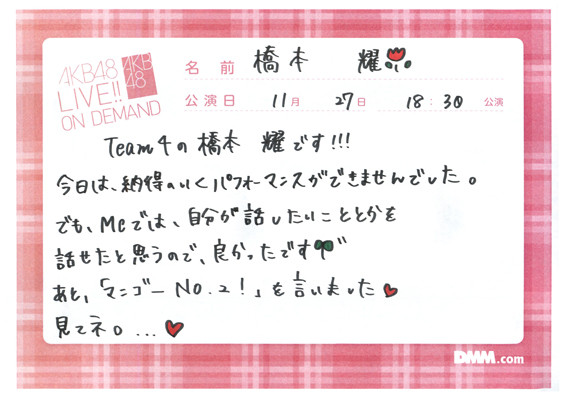 AKB48
LIVE!!
ON DEMAND
AKB
48
名前 橋本 耀
公演日 11月 27日 18:30 公演
Team4の橋本 耀です!!!
今日は、納得のいくパフォーマンスができませんでした。
でも、MCでは、自分が話したいこととかを
話せたと思うので、良かったです
あと、「マンゴー No.2!」を言いました
見てネ。...
DMM.com